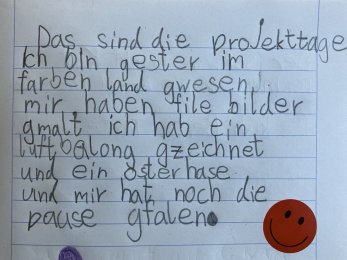 Das sind die projekttage
Ich bin gester im
farben land gwesen
mir haben file bilder
gmalt ich hab ein
luftbalong gzeichnet
und ein osterhase
und mir hat noch die
pause gfalen.